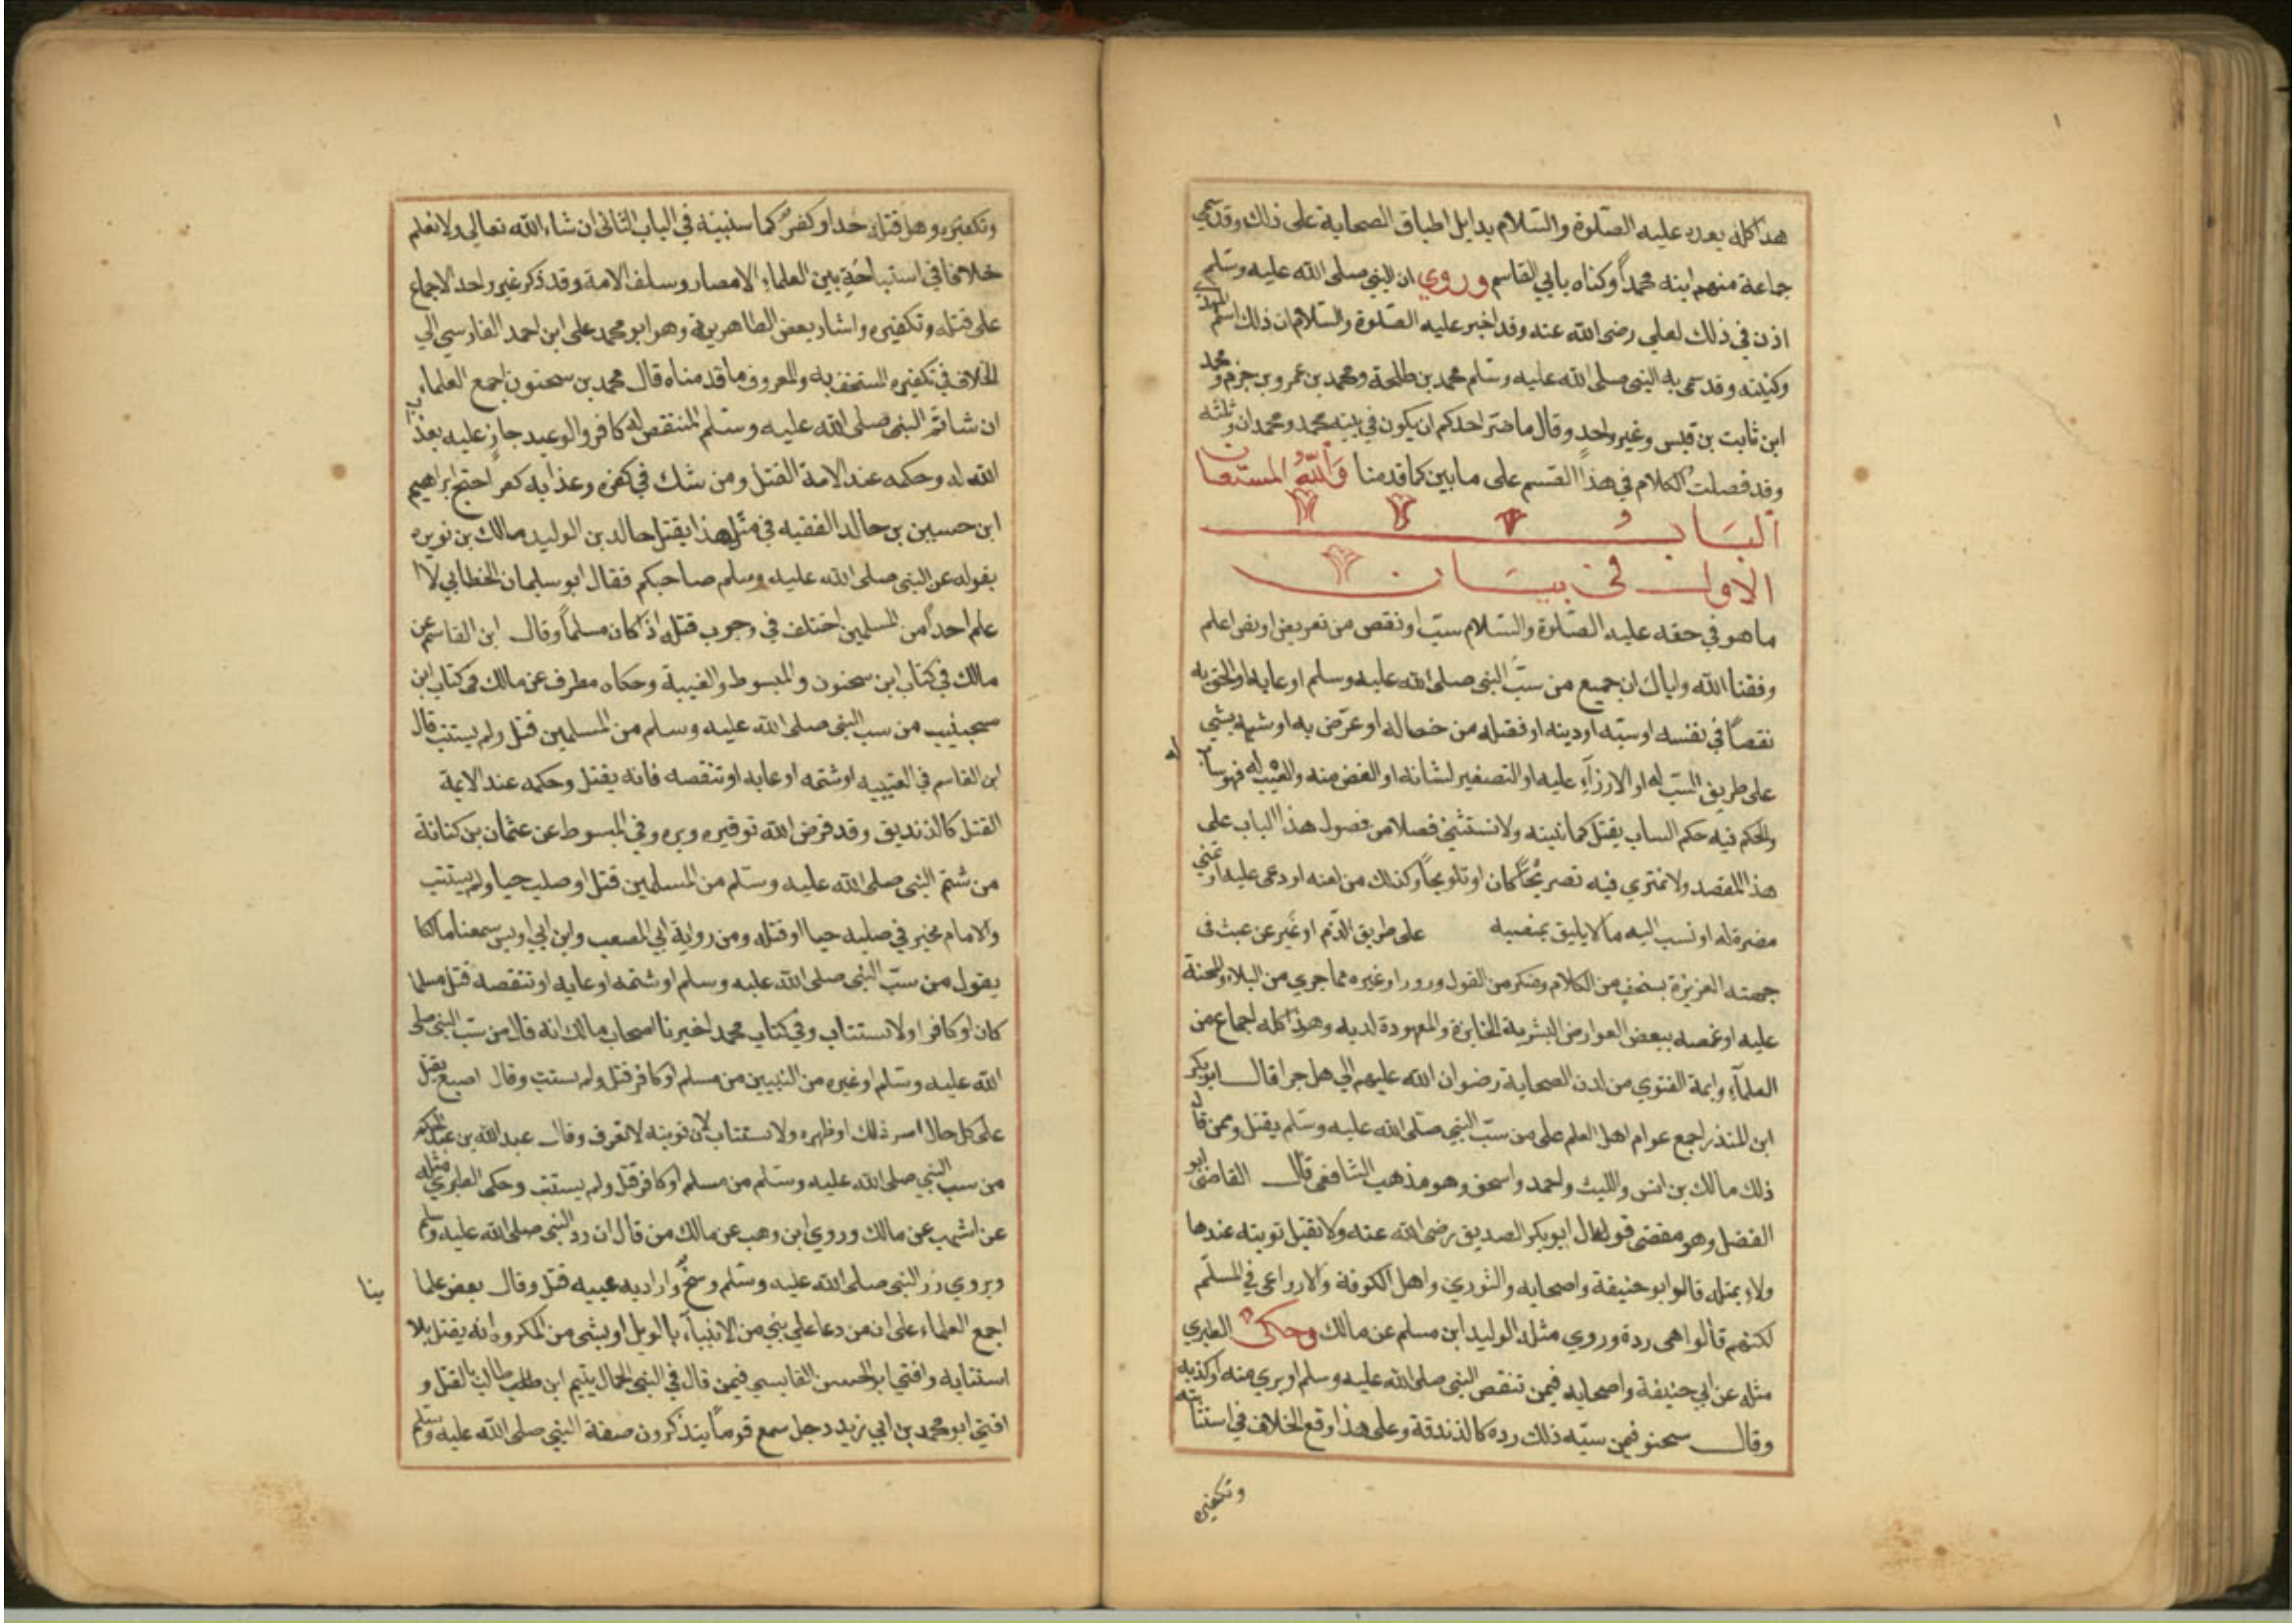 هذا كله بعده عليه الصلوة والسلام بدليل اطباق الصحابة على ذلك وقد سمى
جماعة منهم ابنه محمداً وكناه بابي القاسم وروي ان النبي صلى الله عليه وسلم
اذن في ذلك لعلي رضى الله عنه وقد اخبر عليه الصلوة والسلام ان ذلك اسم المهدي
وكنيته وقد سمى به النبي صلى الله عليه وسلم محمد بن طلحة ومحمد بن عمرو بن حزم ومحمد
ابن ثابت بن قيس وغير واحد وقال ما ضر احدكم ان يكون في بيته محمد ومحمدان وثلثه
وقد فصلت الكلام في هذا القسم على ما بين كما قدمنا والله المستعان
الباب
الاول في بيان
ما هو في حقه عليه الصلوة والسلام سب او نقص من تعريض او نص اعلم
وفقنا الله واياك ان جميع من سب النبي صلى الله عليه وسلم او عابه او الحق به
نقصاً في نفسه او سبه او دينه او خصله من خصاله او عرض به او شبهه بشي
على طريق السب له او الازراء عليه او التصغير لشانه او الغض منه والعيب له فهو ساب له
والحكم فيه حكم الساب يقتل كما نبينه ولا نستثني فصلا من فصول هذا الباب على
هذا المقصد ولا نمتري فيه تصريحاً كان او تلويحاً وكذلك من لعنه او دعى عليه او تمنى
مضرة له او نسب اليه ما لا يليق بمنصبه على طريق الذم او غير عن عبث في
جهته العزيزة بسخف من الكلام ومنكر من القول وزورا وغيره مما جرى من البلاء والمحنة
عليه او غمصه ببعض العوارض البشرية الجايزة والمعهودة لديه وهذا كله اجماع من
العلماء وايمة الفتوي من لدن الصحابة رضوان الله عليهم الي هلم جرا قال ابو بكر
ابن المنذر اجمع عوام اهل العلم على من سب النبي صلى الله عليه وسلم يقتل وممن قال
ذلك مالك بن انس والليث واحمد واسحق وهو مذهب الشافعى قال القاضى ابو
الفضل وهو مقتضى قول ابوبكر الصديق رضى الله عنه ولا تقبل توبته عندها
ولاء بمثله قال ابو حنيفة واصحابه والثوري واهل الكوفة والاوزاعى في المسلم
لكنهم قالوا هى ردة وروي مثله الوليد ابن مسلم عن مالك وحكى الطبري
مثله عن ابي حنيفة واصحابه فيمن تنقص النبي صلى الله عليه وسلم او بري منه او كذبه
وقال سحنون فيمن سبه ذلك ردة كالزندقة وعلى هذا وقع الخلاف في استتابته
وتكفيره
وتكفيره وهل قتله حد او كفر كما سنبينه في الباب الثانى ان شاء الله تعالى ولا نعلم
خلافا في استباحة بين العلماء الامصار وسلف الامة وقد ذكر غير واحد الاجماع
على قتله وتكفيره واشار بعض الظاهرية وهو ابو محمد على ابن احمد الفارسي الي
الخلاف في تكفيره المستخف به والمعروف ما قدمناه قال محمد بن سحنون اجمع العلماء
ان شاتم النبي صلى الله عليه وسلم المتنقص له كافر والوعيد جار عليه بعذاب
الله له وحكمه عند الامة القتل ومن شك في كفره وعذابه كفر احتج ابراهيم
ابن حسين بن خالد الفقيه في مثل هذا بقتل خالد بن الوليد مالك بن نويرة
بقوله عن النبي صلى الله عليه وسلم صاحبكم فقال ابو سليمان الخطابي لا ا
علم احداً من المسلمين اختلف في وجوب قتله اذا كان مسلماً وقال ابن القاسم عن
مالك في كتاب ابن سحنون والمبسوط والعتبية وحكاه مطرف عن مالك في كتاب ابن
حبيب من سب النبي صلى الله عليه وسلم من المسلمين قتل ولم يستتب قال
ابن القاسم في العتبيه او شتمه او عابه او تنقصه فانه يقتل وحكمه عند الايمة
القتل كالزنديق وقد فرض الله توقيره وبره وفي المبسوط عن عثمان بن كنانة
من شتم النبي صلى الله عليه وسلم من المسلمين قتل او صلب حيا ولم يستتب
والامام مخير في صلبه حيا او قتله ومن رواية ابي المصعب وابن ابي اويس سمعنا مالكا
يقول من سب النبي صلى الله عليه وسلم او شتمه او عابه او تنقصه قتل مسلما
كان او كافرا ولا يستتاب وفي كتاب محمد اخبرنا اصحاب مالك انه قال من سب النبي صلى
الله عليه وسلم او غيره من النبيين من مسلم او كافر قتل ولم يستتب وقال اصبغ يقتل
على كل حال اسر ذلك او ظهره ولا يستتاب لان توبته لا تعرف وقال عبد الله بن عبد الحكم
من سب النبي صلى الله عليه وسلم من مسلم او كافر قتل ولم يستتب وحكى الطبري مثله
عن اشهب عن مالك وروي ابن وهب عن مالك من قال ان رد النبي صلى الله عليه وسلم
ويروي زر النبي صلى الله عليه وسلم وسخ واراد به عيبه قتل وقال بعض علماينا
اجمع العلماء على ان من دعا على نبي من الانبياء بالويل او بشى من المكروه انه يقتل بلا
استتابه وافتى ابو الحسن القابسي فيمن قال في النبي الجمال يتيم ابن طالب بالقتل و
افتى ابو محمد بن ابي زيد رجل سمع قوماً يتذكرون صفة النبي صلى الله عليه وسلم